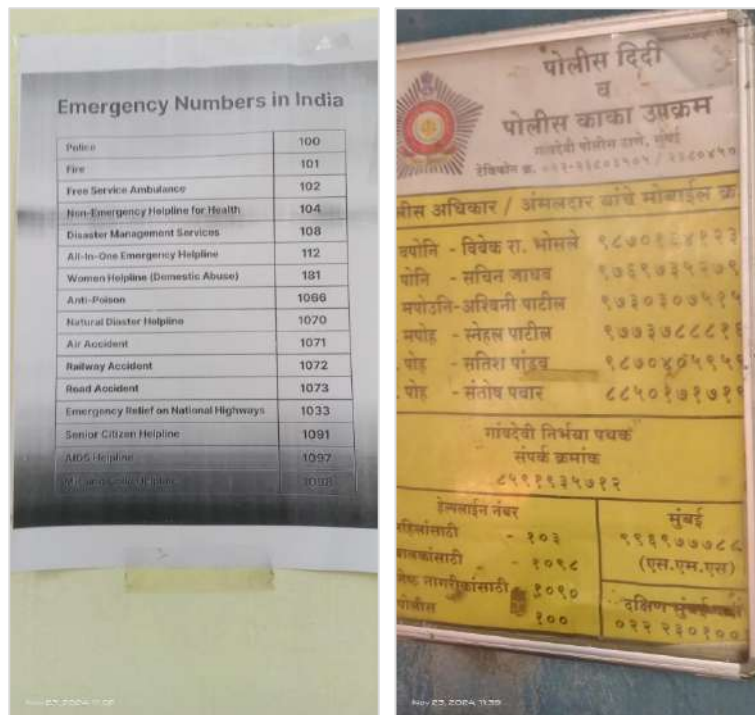 Emergency Numbers in India
Police 100
Fire 101
Free Service Ambulance 102
Non-Emergency Helpline for Health 104
Disaster Management Services 108
All-In-One Emergency Helpline 112
Women Helpline (Domestic Abuse) 181
Anti-Poison 1066
Natural Diaster Helpline 1070
Air Accident 1071
Railway Accident 1072
Road Accident 1073
Emergency Relief on National Highways 1033
Senior Citizen Helpline 1091
AIDS Helpline 1097
1098
Nov 23, 2024
पोलीस दिदी
व
पोलीस काका उपक्रम
गावदेवी पोलीस ठाणे, मुंबई
टेलिफोन क्र.
लीस अधिकार / अंमलदार यांचे मोबाईल क्र.
वपोनि - विवेक रा. भोसले ९८७०१६४१२३
पोनि - सचिन जाधव ९७६९७३५२७९
मपोउनि-अश्विनी पाटील ९७३०३०७५१५
मपोह - स्नेहल पाटील ९७७३७८८८१६
पोह - सतिश पांडव
पोह - संतोष पवार ८८५०१७१७१९
गांवदेवी निर्भया पथक
संपर्क क्रमांक
८५९१९३५७१२
हेल्पलाईन नंबर
महिलांसाठी - १०३
बालकांसाठी - १०९८
नागरीकांसाठी - १०९०
पोलीस १००
मुंबई
९९६९७७७८८
(एस.एम.एस)
दक्षिण मुंबई
०२२ २३०१००
Nov 23, 2024 11:39